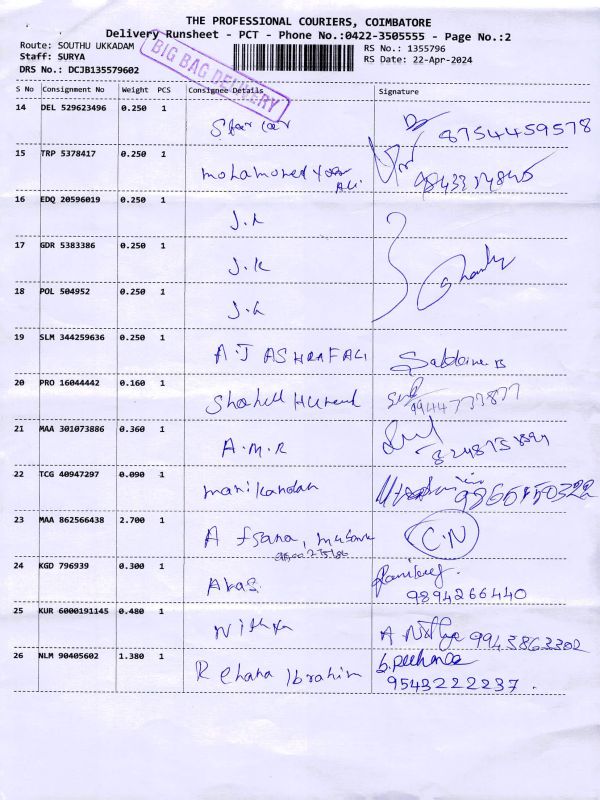 THE PROFESSIONAL COURIERS, COIMBATORE
Delivery Runsheet - PCT - Phone No.:0422-3505555 - Page No.:2
Route: SOUTHU UKKADAM
RS No.: 1355796
Staff: SURYA
RS Date: 22-Apr-2024
DRS No.: DCJB135579602
BIG BAG DELIVERY
S No Consignment No Weight PCS Consignee Details Signature
14 DEL 529623496 0.250 1 Star car 8754459578
15 TRP 5378417 0.250 1 Mohamomed
Ali
16 EDQ 20596019 0.250 1 J.K
17 GDR 5383386 0.250 1 J.K
18 POL 504952 0.250 1 J.K
19 SLM 344259636 0.250 1 A.J ASHRAF ALI
20 PRO 16044442 0.160 1
21 MAA 301073886 0.360 1 A.M.R
22 TCG 40947297 0.090 1 Manikandan
23 MAA 862566438 2.700 1 C.N
24 KGD 796939 0.300 1 9894266440
25 KUR 6000191145 0.480 1 Nithya A Nithya 9943863302
26 NLM 90405602 1.380 1 Rehana Ibrahim
9543222237.